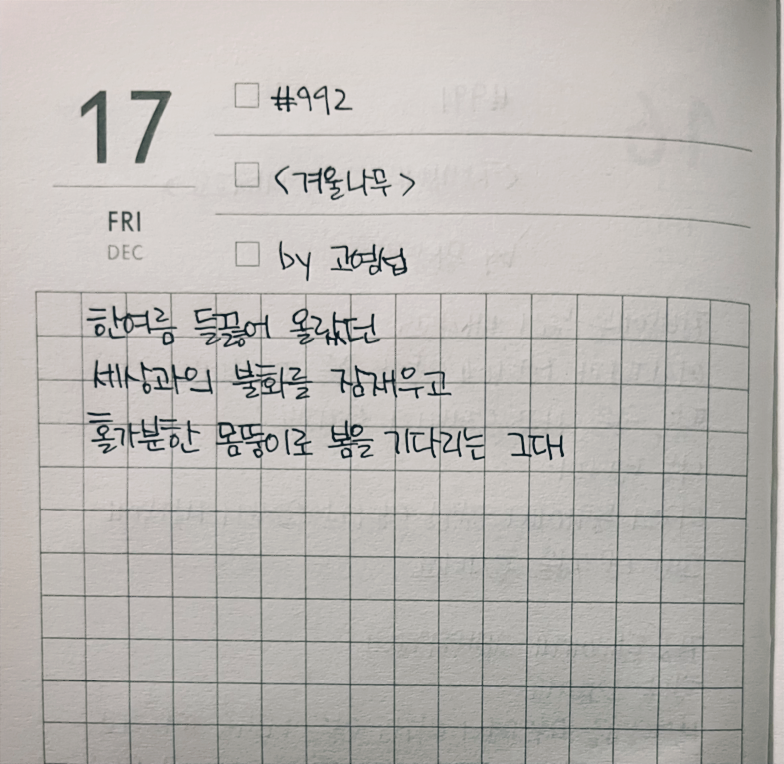 17
FRI
DEC
#992
<겨울나무>
by 고영섭
한여름 들끓어 올랐던
세상과의 불화를 잠재우고
홀가분한 몸뚱이로 봄을 기다리는 그대